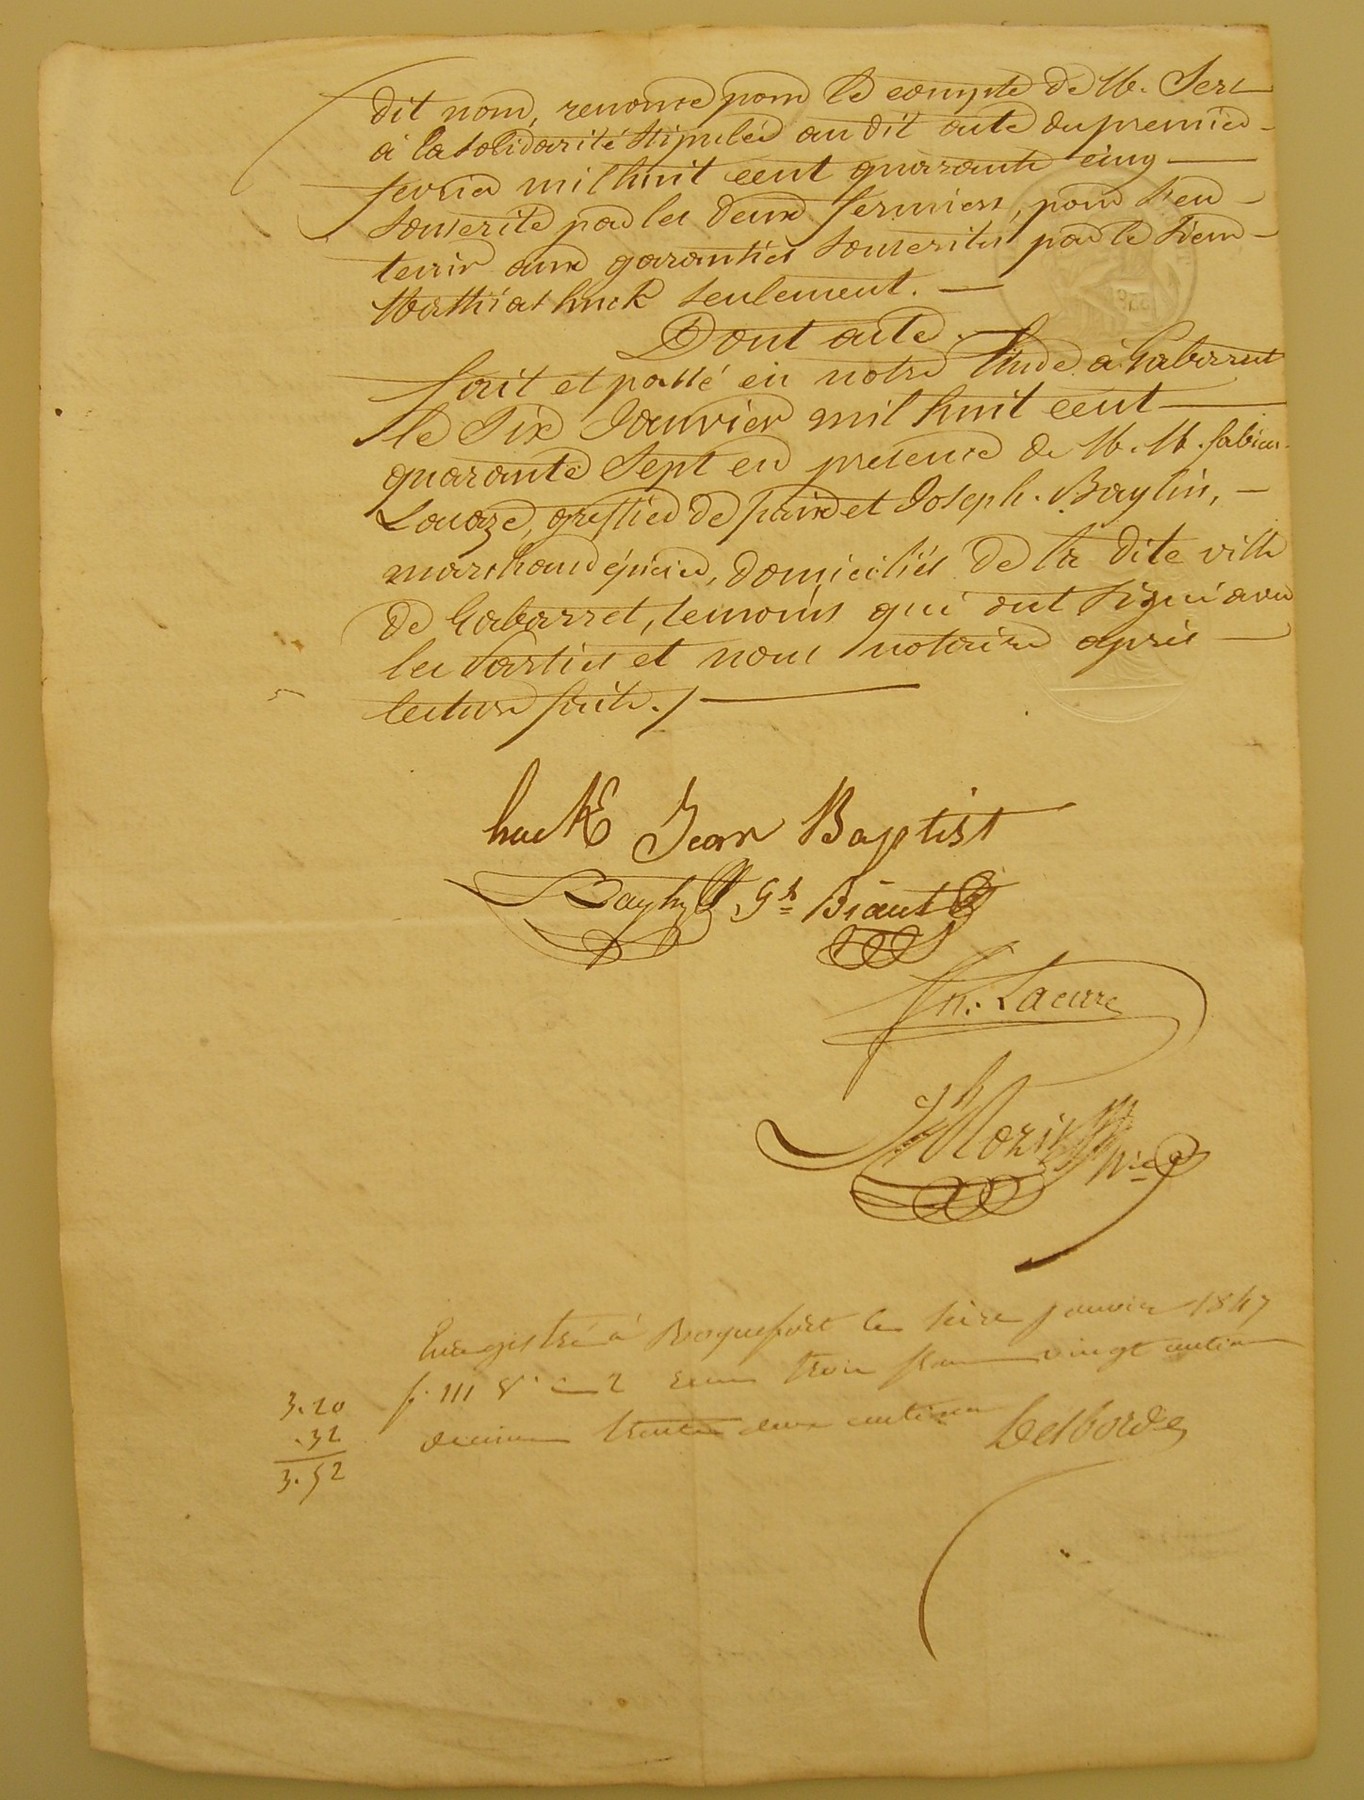 dit nom, renonce pour le compte de M. Sere
à la solidarité stipulée au dit acte du premier
fevrier mil huit cent quarante cinq
souscrite par les deux fermiers, pour s'en
tenir aux garanties souscrites par le sieur
Mathias huck seulement.
Dont acte.
fait et passé en notre Etude à Gabarret
le Six Janvier mil huit cent
quarante Sept en presence de M. M. fabien
greffier de paix et Joseph Baylin,
marchand épicier, domiciliés de la dite ville
de Gabarret, temoins qui ont signé avec
les Parties et nous notaire après
lecture faite./
huck Jean Baptist
Baylin
Lacure
Enregistré à Roquefort le seize janvier 1847
f. 111 V. c 2 recu trois francs vingt centimes
3.20
decime trente deux centimes
.32
Delborde
3.52